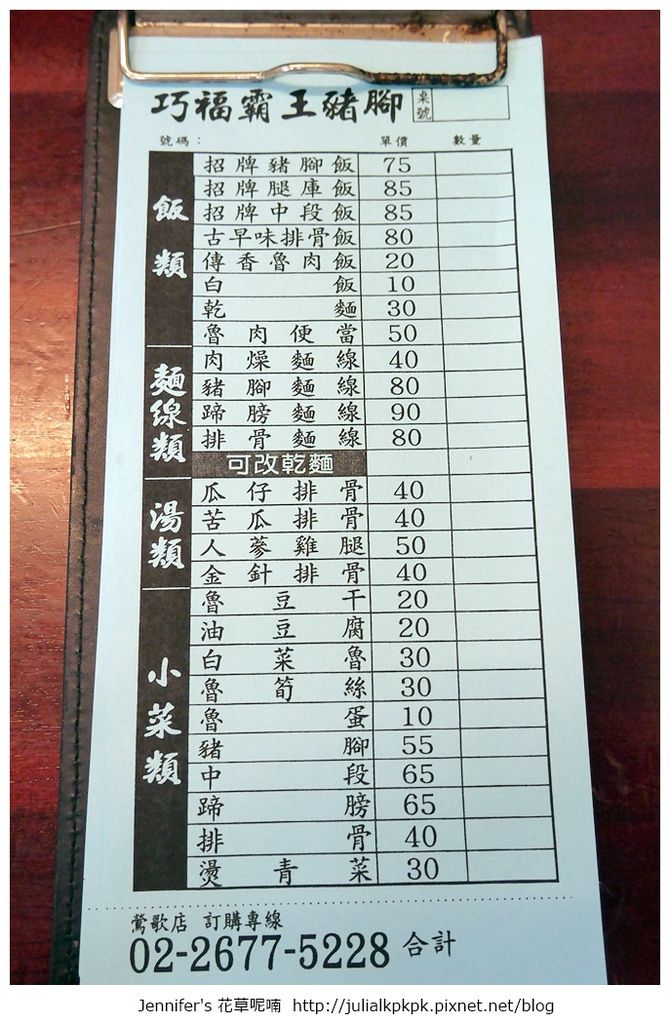 巧福霸王豬腳 桌號
號碼： 單價 數量
飯類
招牌豬腳飯 75
招牌腿庫飯 85
招牌中段飯 85
古早味排骨飯 80
傳香魯肉飯 20
白飯 10
乾麵 30
魯肉便當 50
麵線類
肉燥麵線 40
豬腳麵線 80
蹄膀麵線 90
排骨麵線 80
可改乾麵
湯類
瓜仔排骨 40
苦瓜排骨 40
人蔘雞腿 50
金針排骨 40
小菜類
魯豆干 20
油豆腐 20
白菜魯 30
魯筍絲 30
魯蛋 10
豬腳 55
中段 65
蹄膀 65
排骨 40
燙青菜 30
鶯歌店 訂購專線
02-2677-5228 合計
Jennifer's 花草呢喃 http://julialkpkpk.pixnet.net/blog